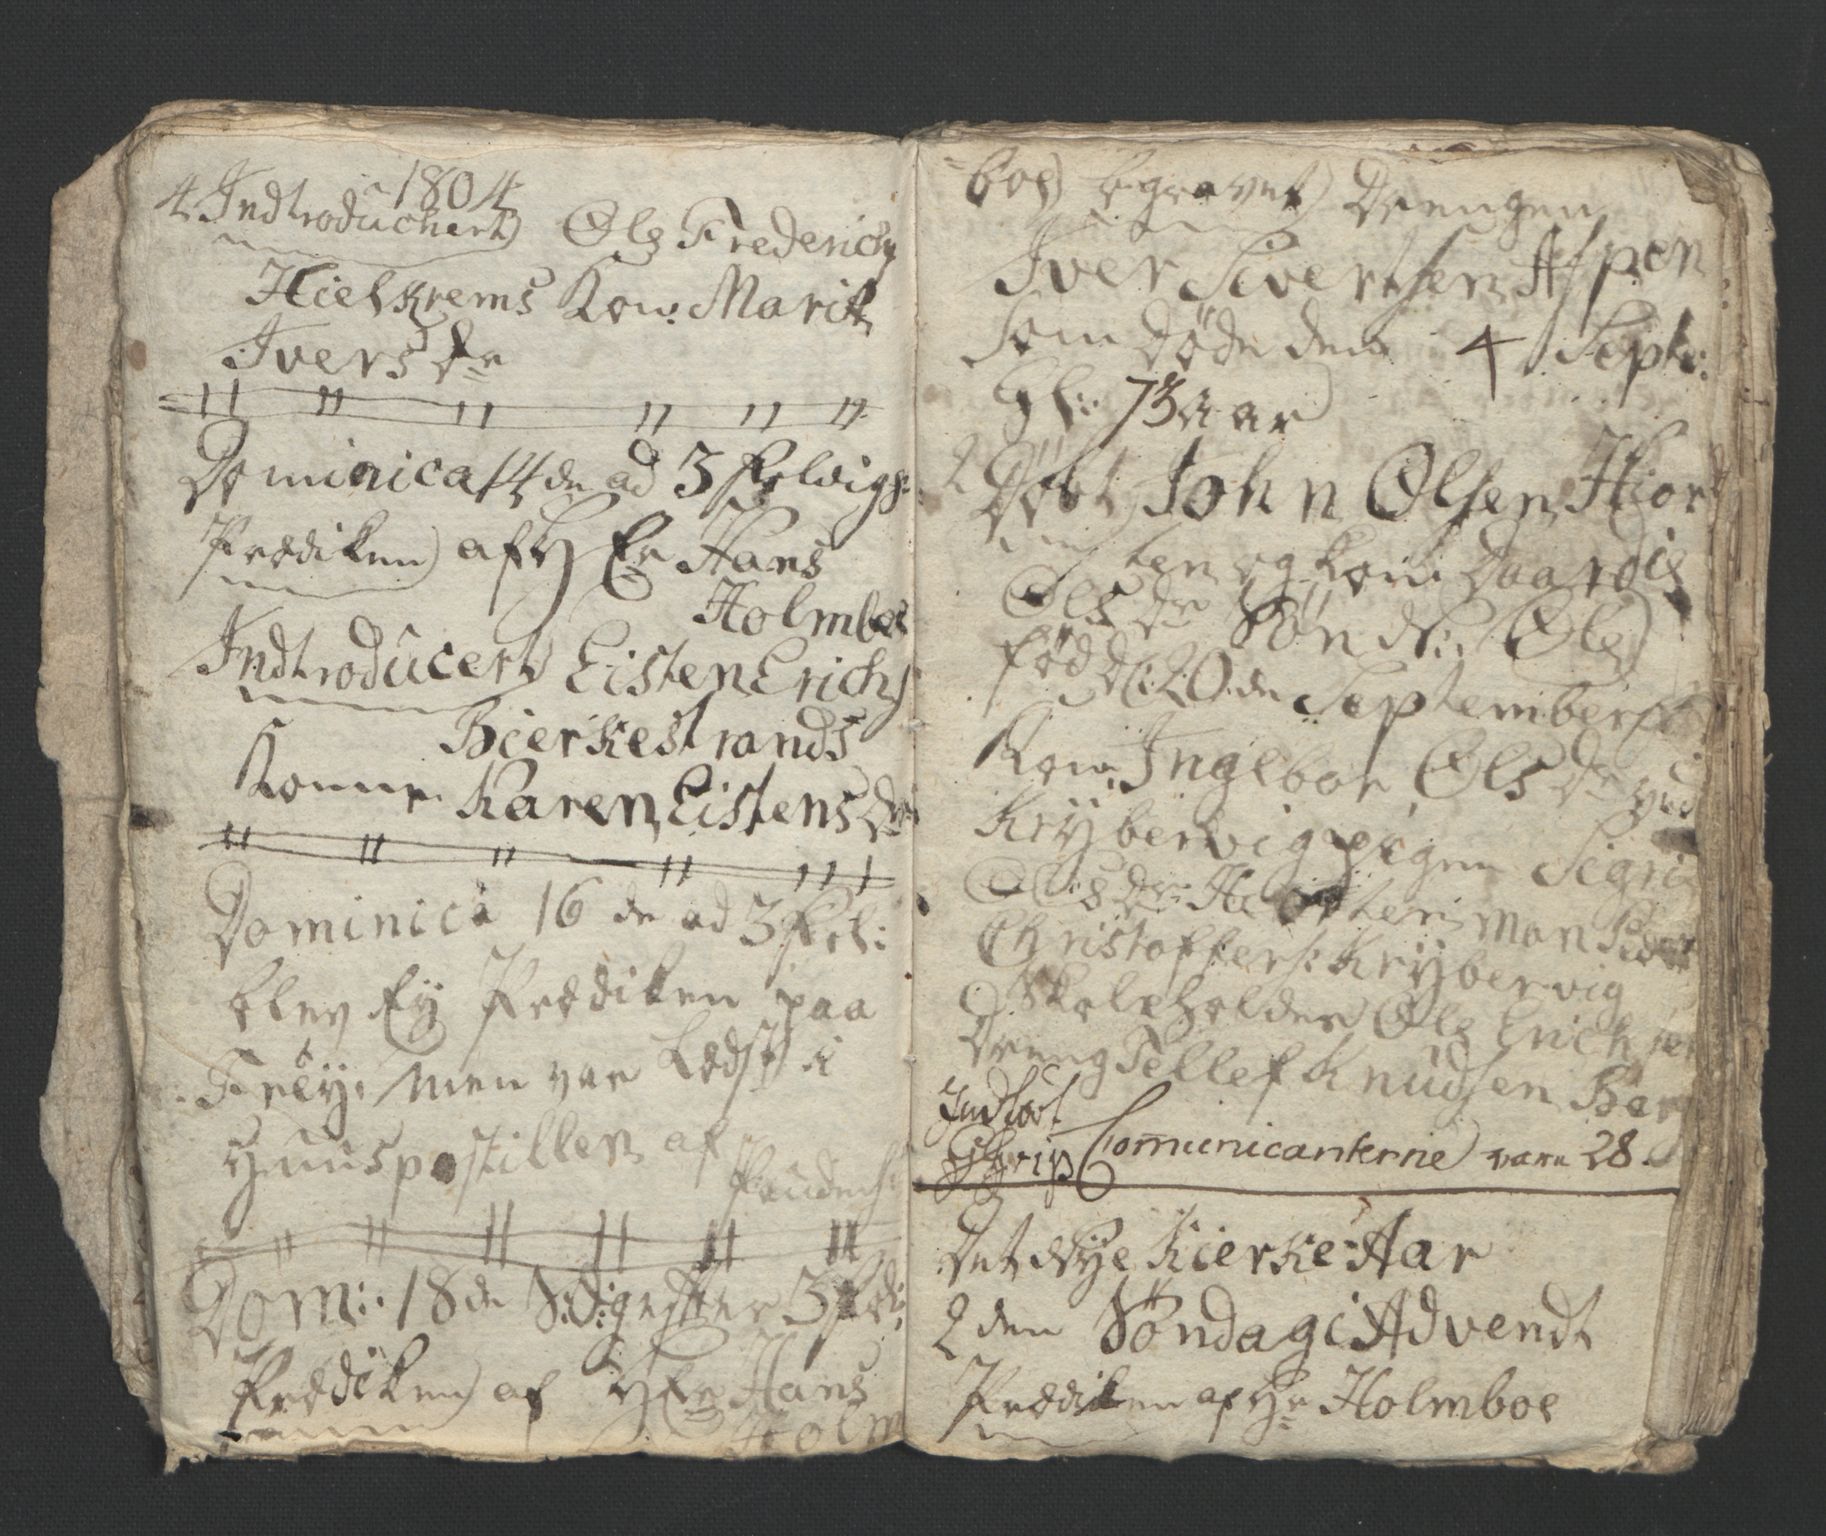 1804
4 Indtroduchert Ole Frederichs
Hielkrems Kone Marit
Ivers dr
Dominica 14 de ad 3 Foldigh:
Prædiken af H Er Hans
Holmboe
Indtroducert Eisten Erichs
Bierkestrands
Konne Karen Eistens Dr
Dominica 16 de ad 3 Fol:
blev Ey Prædiken paa
Freÿ. men var Lædst i
Huuspostillen af
Dom: 18 de S: D: efter 3 Fol:
Prædiken af H Er Hans
Holm
boe begravet Drengen
Iver Sivertsen Aspen
som døde den 4 Sept:
Gl: 73 Aar
2 Døbt John Olsen Hior
ten og kone Baardis
Ols dr Søn N: Ole
fød D: 20 de September
Kone Ingebor Ols dr
Krÿbervig pigen Sigri
Ols dr: Hiorten Man Peder
Christoffers: Krÿbervig
Skoleholder Ole Erichsen
Dreng Tellef Knudsen
Comunicanterne vare 28
Det Nÿe Kierke-Aar
2 den Søndag i Advendt
Prædiken af Hr Holmboe